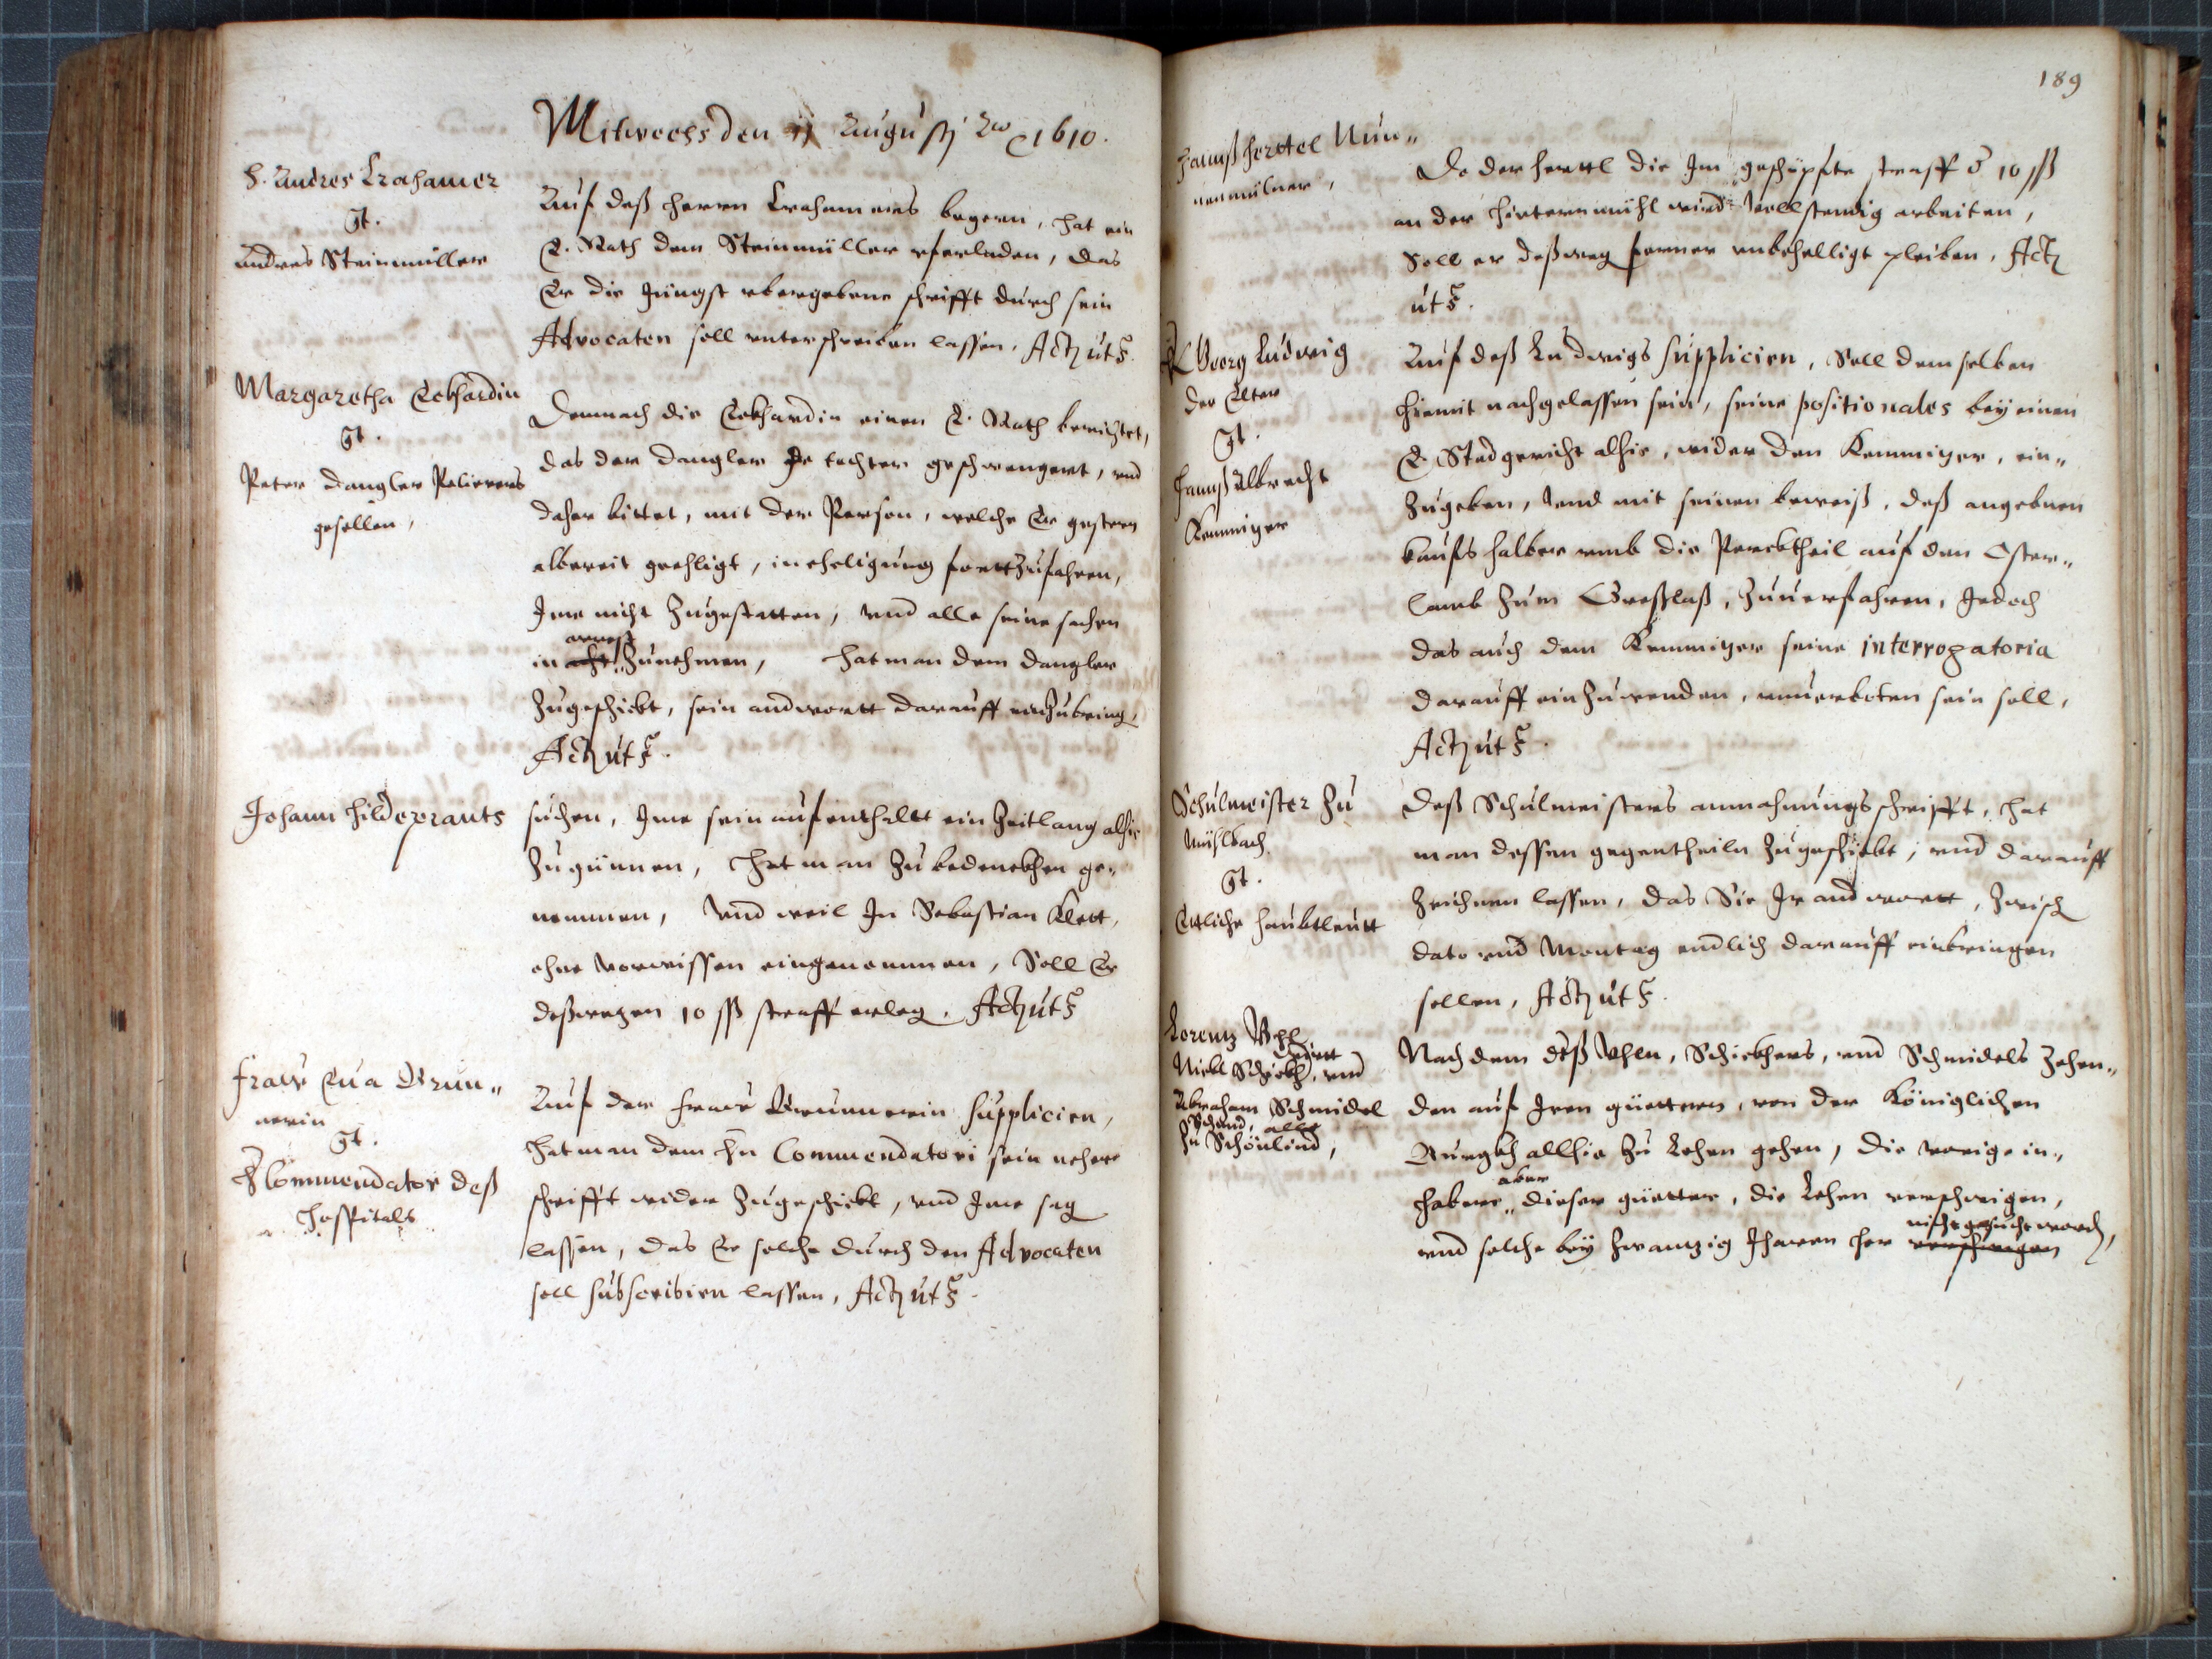 Mitwochs den 11 Augustj Ao 1610.
H. Andres Crahamer
Gt.
Andres Steinmüller
Auf deß Herrn Crahamers begern, hat ein
E. Rath dem Steinmüller auferladen, das
Er die Jüngst vbergebene schrifft durch sein
Advocaten soll vnterschreiben lassen, Act. ut s.
Margaretha Eckhardin
Gt.
Peter Dangler Palierers
gesellen,
Demnach die Eckhardin einen E. Rath berichtet,
das der Dangler Ir tochter geschwengert, vnd
daher bittet, mit der Person, welche Er gestern
albereit geehligt, in eheligung forttzufahren,
Ime nicht zugestatten, vnd alle seine sachen
in arrest zunehmen, hat man dem Dangler
zugeschickt, sein andwortt darauff einzubring,
Act. ut s.
Johann Hilteprants
suchen, Ime sein aufenthaltt ein zeitlang alhie
zugünnen, hat man zu bedenckhen ge„
nommen, Vnd weil In Sebastian Klett,
ohne vorwissen eingenommen, Soll Er
deßwegen 10 ß straff erleg. Act. ut s.
Fraw Eua Brun„
nerin
Gt.
H Commendator deß
Hospitals
Auf der Fraw Brunnerin supplicirn,
hat man dem Hn Commendatori sein nehere
schrifft wider zugeschickt, vnd Ime sag
lassen, das Er solche durch den Advocaten
soll subscribirn lassen, Act. ut s.
189
Hannß Herttel Nun„
nenmülner,
Do der Herttl die Im geschöpfte straff d 10 ß
an der Hinternmühl wird Vollstendig arbeiten,
Soll er deßweg ferner vnbehelligt pleiben, Act.
ut s.
H Georg Ludwig
der Elter
Gt.
Hannß Albrecht
Kemmizer
Auf deß Ludwigs supplicirn, Soll demselben
hiemit nachgelassen sein, seine positionales bey einen
E. Stadgericht alhie, wider den Kemmizer, ein„
zugeben, Vnd mit seinen beweiß, deß angebnen
kaufs halber vmb die Perckhtheil auf den Oster„
lamb zum Greßlaß, zuuerfahren, Jedoch
das auch dem Kemmizer seine interrogatoria
darauff einzuwenden, vnuerboten sein soll,
Act. ut s.
Schulmeister zu
Mühlbach
Gt.
Ettliche Haubtleutt
Deß Schulmeisters anmahnungs schrifft, hat
man dessen gegentheiln zugeschickt, vnd darauff
zeichnen lassen, das Sie Ir andwortt, zwisch
dato vnd Montag endlich darauff einbringen
sollen, Act. ut s.
Lorentz Vhl
Nickl Schickh, vnd
Abraham Schmidel
alle
zu Schönlind,
Nachdem deß Vhlen, Schickhers, vnd Schmidels Zehen„
den auf Iren güettern, von der Königlichen
Burgkh allhie zu Lehen gehen, die vorige in„
haber aber dieser güetter, die Lehen verschwigen,
vnd solche bey zwantzig Jharen her verschwigen nicht gesucht word,